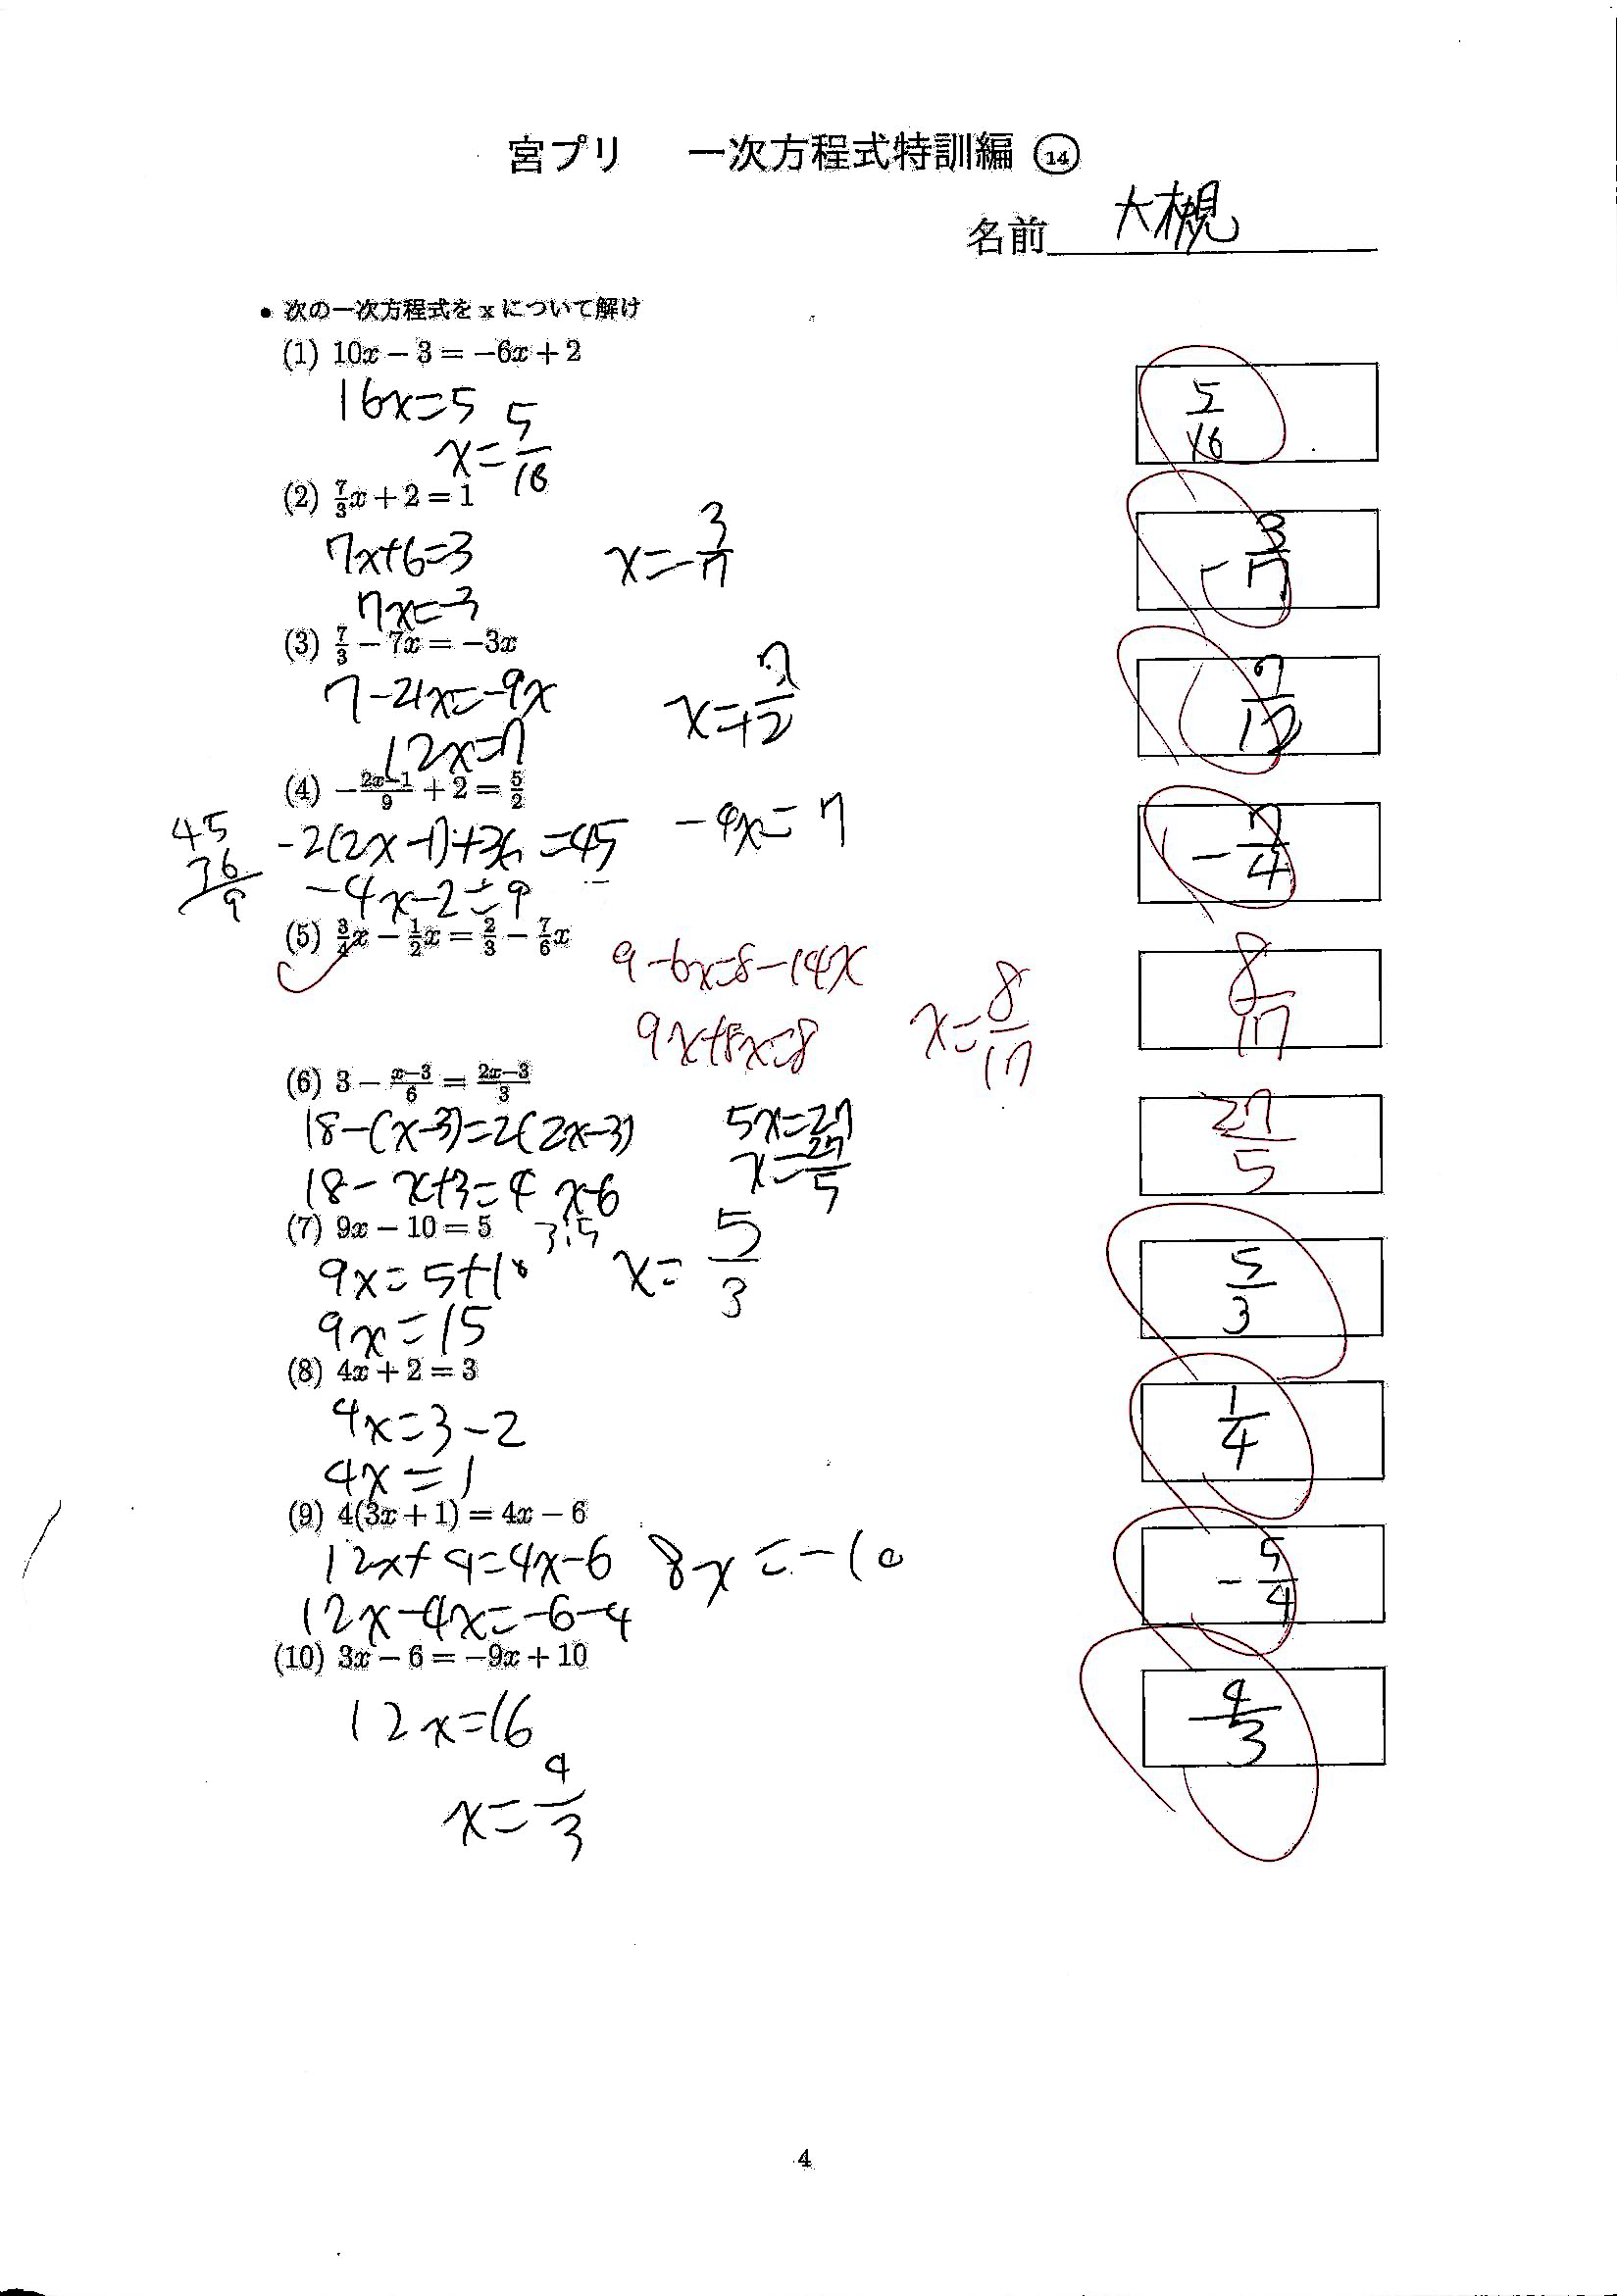 宮プリ 一次方程式特訓編 ⑭
名前 大槻
• 次の一次方程式を x について解け
(1) 10x − 3 = −6x + 2
16x=5
x=5/16
5/16
(2) 7/3x + 2 = 1
7x+6=3
7x=-3
x=-3/7
-3/7
(3) 7/3 − 7x = −3x
7-21x=-9x
12x=7
x=7/12
7/12
(4) −(2x−1)/9 + 2 = 5/2
-2(2x-1)+36=45
-4x-2=9
45
36
9
-4x=7
-7/4
(5) 3/4x − 1/2x = 2/3 − 7/6x
9-6x=8-14x
9x+8x=8
x=8/17
8/17
(6) 3 − (x−3)/6 = (2x−3)/3
18-(x-3)=2(2x-3)
18-x+3=4x-6
5x=27
x=27/5
27/5
(7) 9x − 10 = 5
9x=5+10
9x=15
3:5
x=5/3
5/3
(8) 4x + 2 = 3
4x=3-2
4x=1
1/4
(9) 4(3x + 1) = 4x − 6
12x+4=4x-6
12x-4x=-6-4
8x=-10
-5/4
(10) 3x − 6 = −9x + 10
12x=16
x=4/3
4/3
4